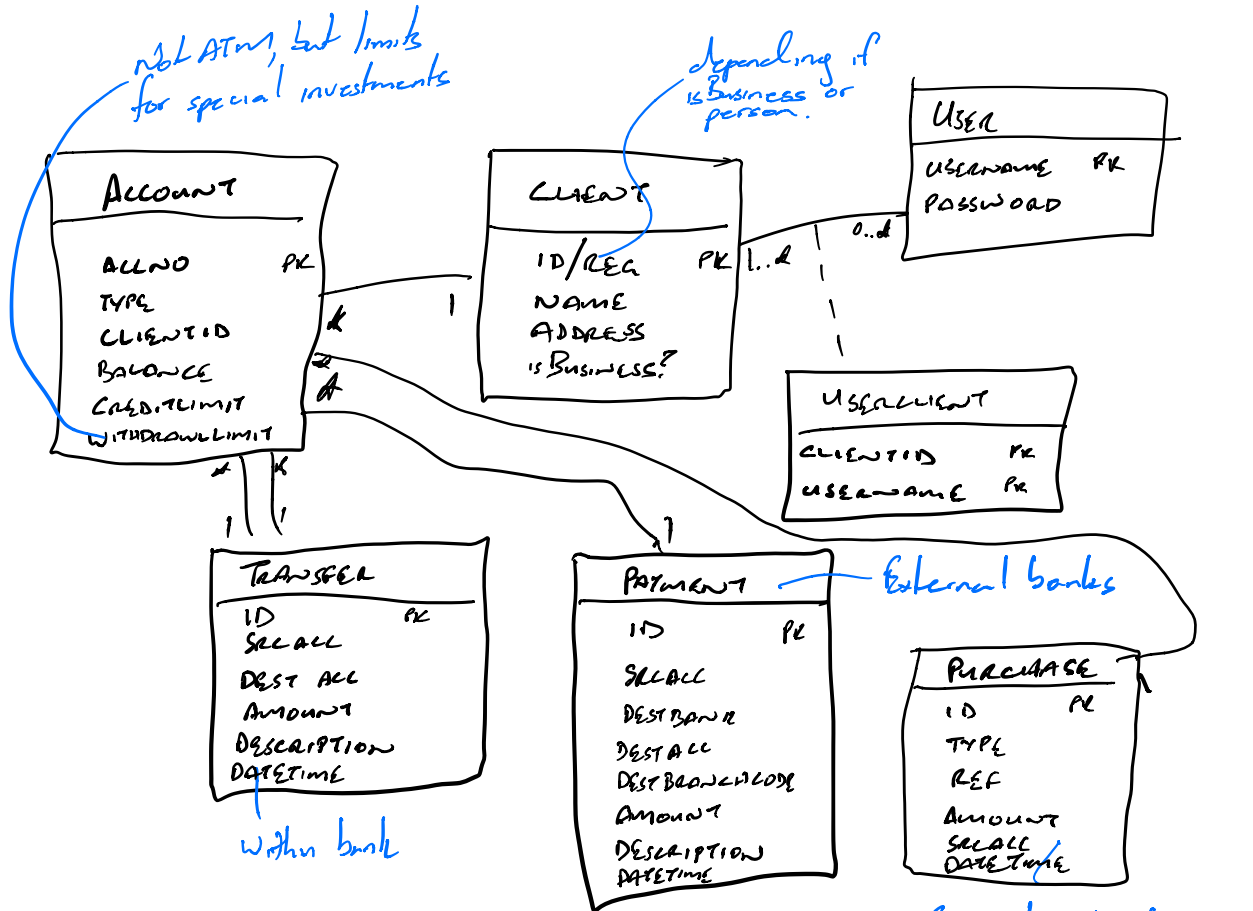 Not ATM, but limits
for special investments
depending if
is Business or
person.
ACCOUNT
ACCNO PK
TYPE
CLIENTID
BALANCE
CREDITLIMIT
WITHDRAWLLIMIT
*
1
CLIENT
ID/REG PK
NAME
ADDRESS
is BUSINESS?
1..*
0..*
USER
USERNAME PK
PASSWORD
USERCLIENT
CLIENTID PK
USERNAME PK
*
*
*
*
1
1
1
1
TRANSFER
ID PK
SRCACC
DEST ACC
AMOUNT
DESCRIPTION
DATETIME
within bank
PAYMENT
ID PK
SRCACC
DESTBANK
DESTACC
DESTBRANCHCODE
AMOUNT
DESCRIPTION
DATETIME
External banks
PURCHASE
ID PK
TYPE
REF
AMOUNT
SRCACC
DATETIME